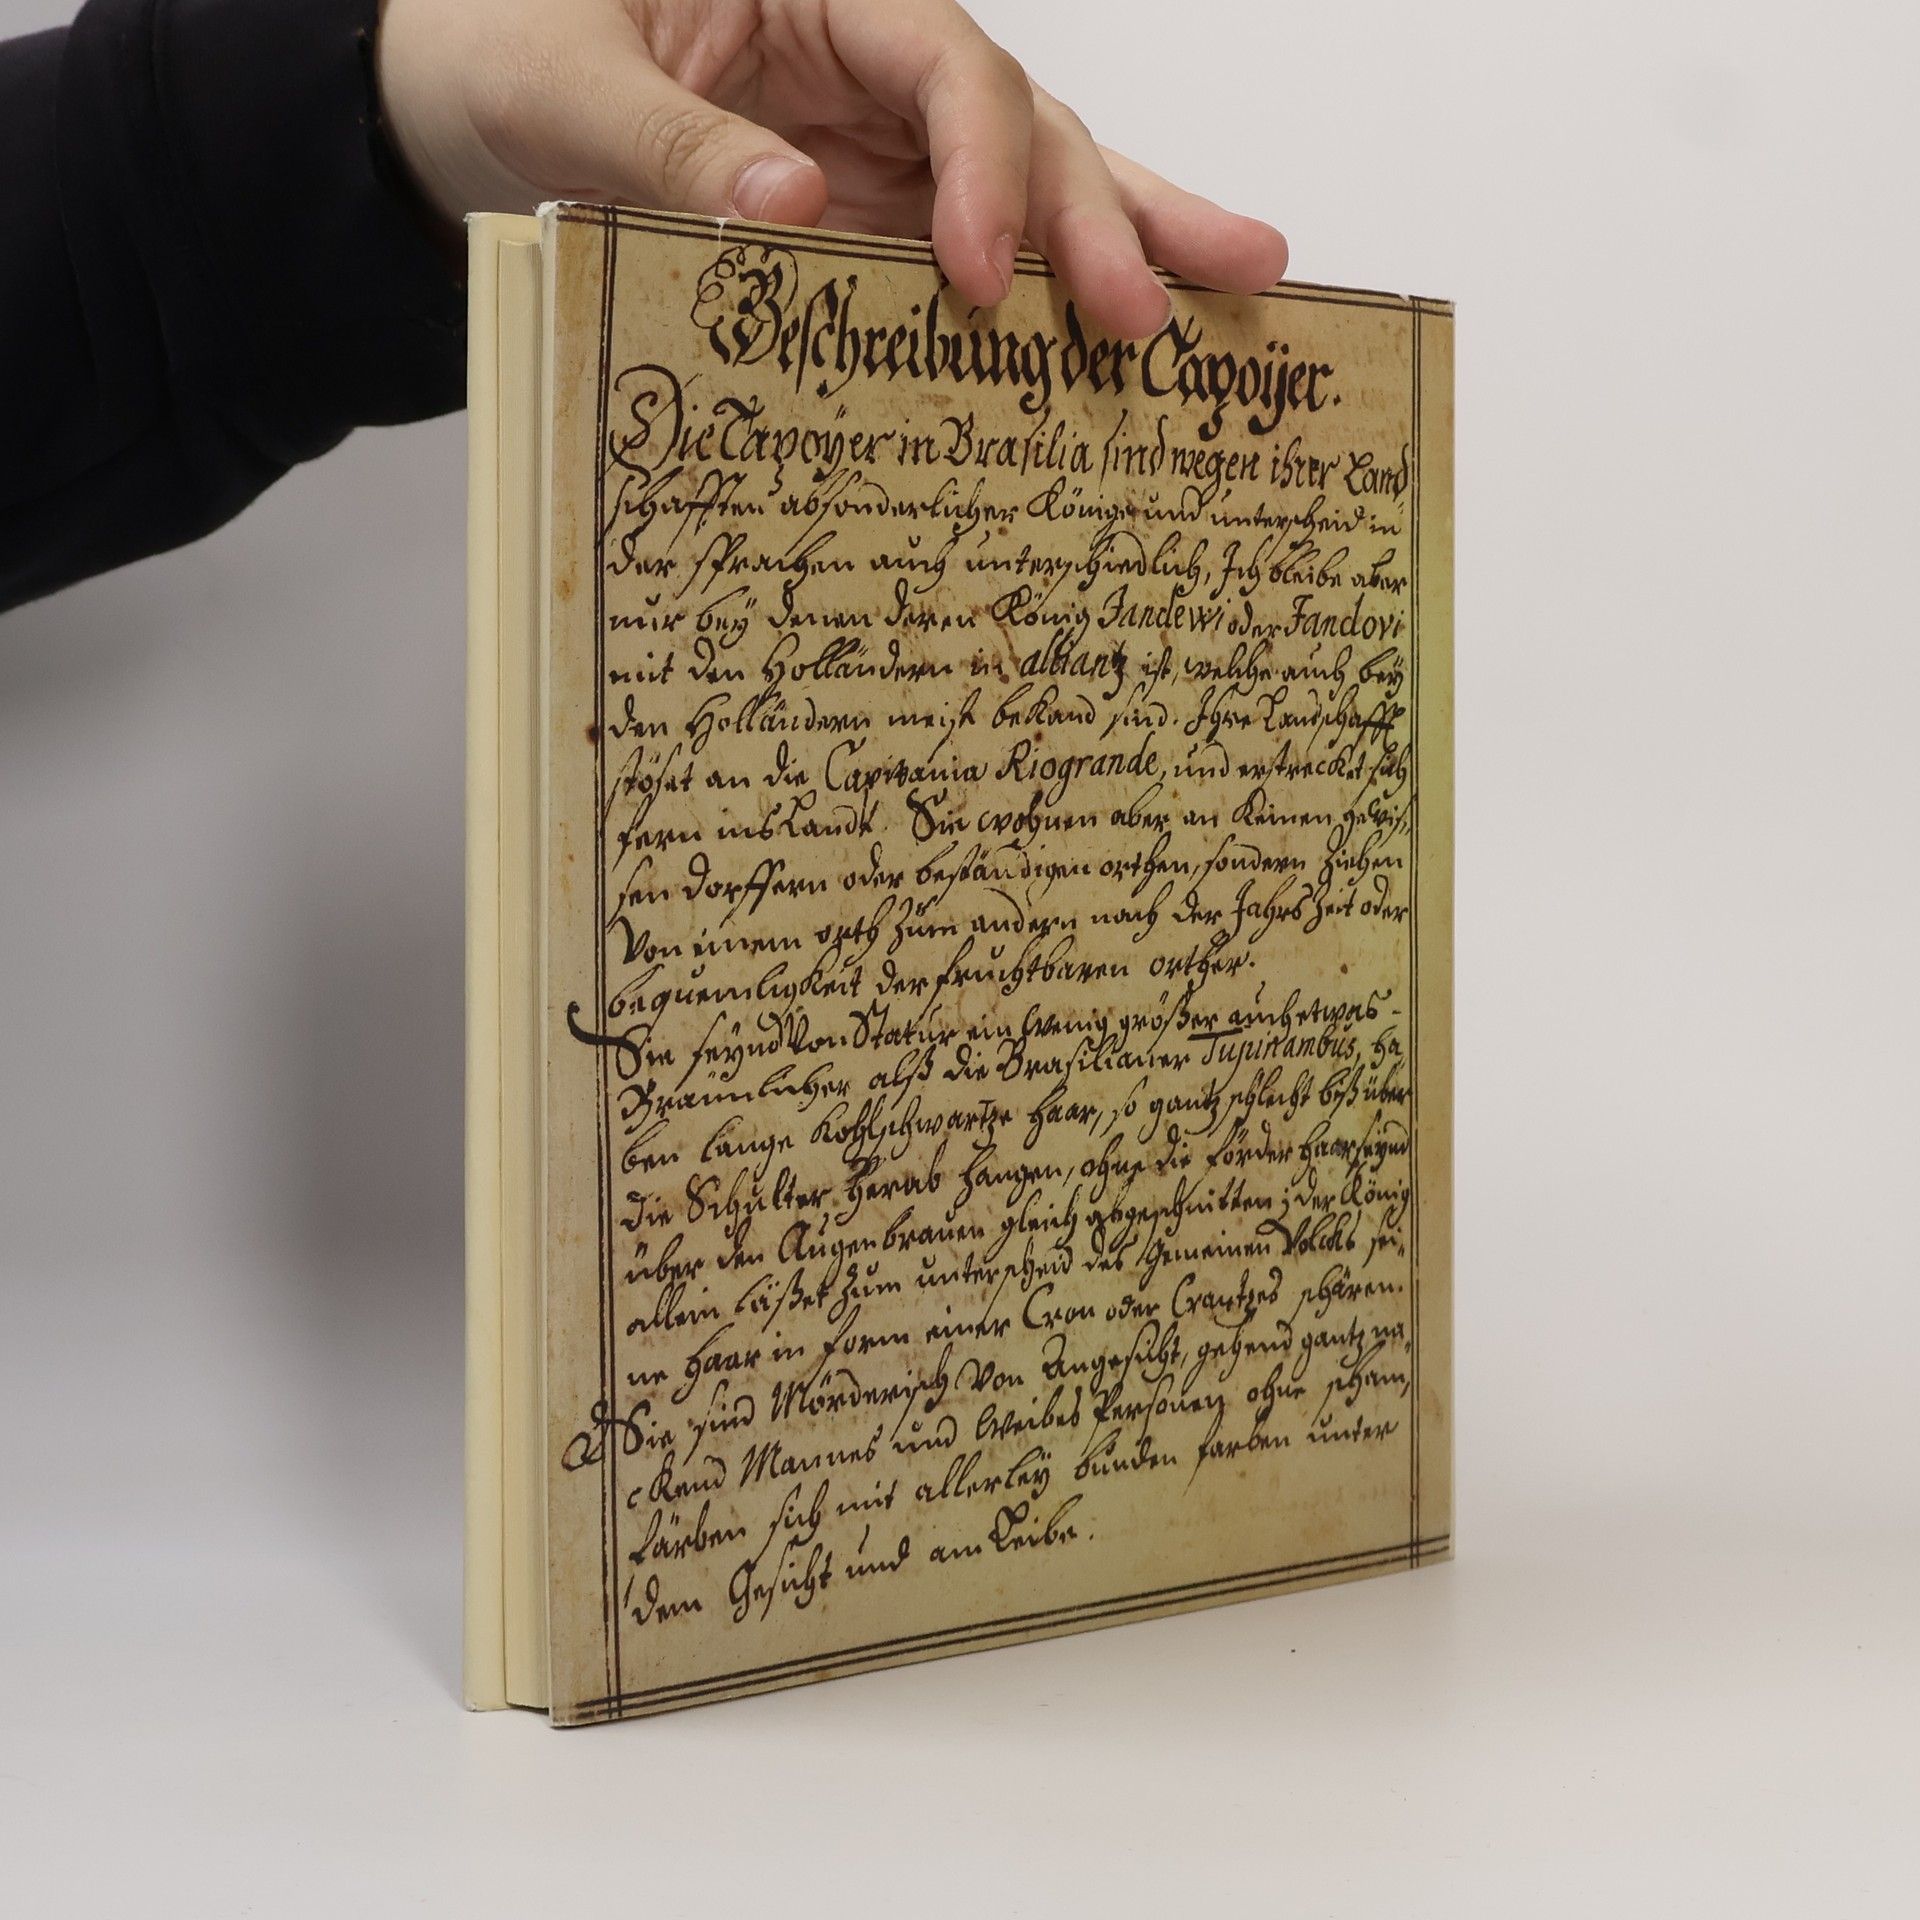 Beschreibung der Tapoÿer.
Die Tapoÿer in Brasilia sind wegen ihrer Land
schafften absonderlicher Könige und unterscheid in
der sprachen auch unterschiedlich, Ich bleibe aber
nur beÿ denen deren König Jandewi oder Jandovi
mit den Holländern in alliantz ist, welche auch beÿ
den Holländern meist bekand sind. Ihre Landschafft
stöset an die Capitania Riogrande, und erstrecket sich
fern ins Landt. Sie wohnen aber an keinen gewis„
sen dorffern oder beständigen orthen, sondern Ziehen
Von einem orth Zum andern nach der Jahrs Zeit oder
bequemligkeit der fruchtbaren orther.
Sie seynd Von Statur ein wenig größer auch etwas -
Bräunlicher alß die Brasilianer Tupinambus, ha„
ben lange kohlschwartze haar, so gantz schlecht biß über
die Schulter herab hangen, ohne die förder haar seynd
über den Augenbrauen gleich abgeschnitten; der König
allein läßet Zum unterscheid des Gemeinen Volcks sei„
ne haar in form einer Cron oder Crantzes schären.
Sie sind Mörderisch Von Angesicht, gehend gantz na„
ckend Mannes und Weibes Personen ohne scham,
färben sich mit allerleÿ bunden farben unter
dem Gesicht und am Leibe.